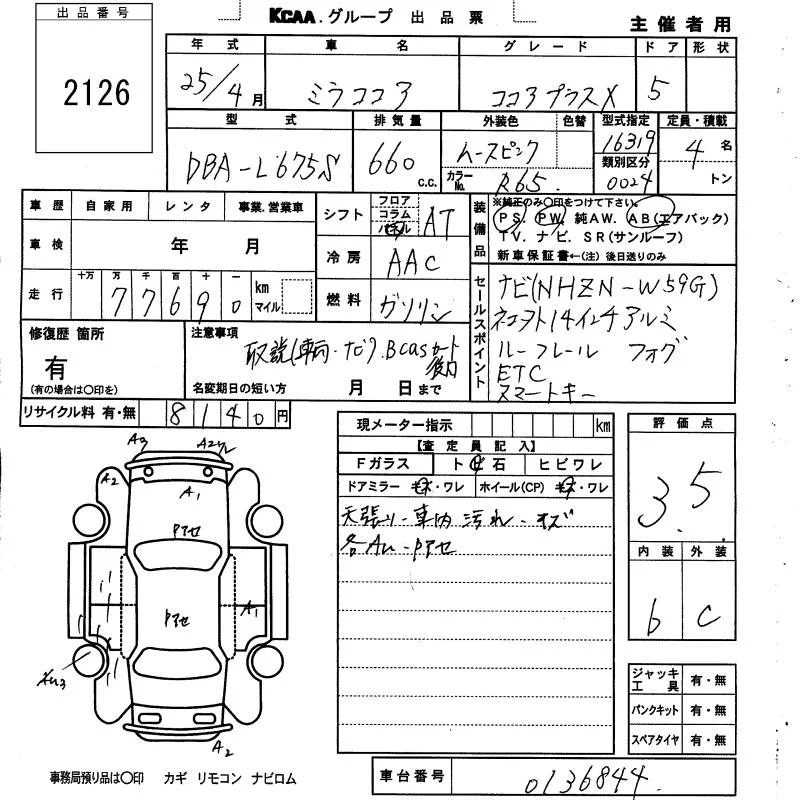 出品番号
2126
KCAA.グループ 出品票
主催者用
年式 車名 グレード ドア 形状
25/4月 ミラココア ココアプラスX 5
型式 排気量 外装色 色替 型式指定 定員・積載
DBA-L675S 660 c.c. ムースピンク 16319 4名
カラーNo. R65 類別区分 0024 トン
車歴 自家用 レンタ 事業.営業車
車検 年 月
走行 十万 万 千 百 十 一 km マイル
7 7 6 9 0
シフト フロア コラム パネル AT
冷房 AAC
燃料 ガソリン
装備品
※純正のみ〇印をつけて下さい。
PS. PW. 純AW. AB(エアバック)
TV. ナビ. SR(サンルーフ)
新車保証書←(注) 後日送りのみ
セールスポイント
ナビ(NHZN-W59G)
14インチアルミ
ルーフレール フォグ
ETC
スマートキー
修復歴 箇所
有
(有の場合は〇印を)
注意事項
取説(車両・ナビ). Bcasカード 後日
名変期日の短い方 月 日まで
リサイクル料 有・無 8140円
現メーター指示 km
【査定員記入】
Fガラス トビ石 ヒビワレ
ドアミラー キズ・ワレ ホイール(CP) キズ・ワレ
天張り-車内 汚れ-キズ
各Au-Pアセ
評価点
3.5
内装 外装
b C
ジャッキ工具 有・無
パンクキット 有・無
スペアタイヤ 有・無
A3 A2
A2
A1
Pアセ
Pアセ
A1
A2
事務局預り品は〇印 カギ リモコン ナビロム
車台番号 0136844